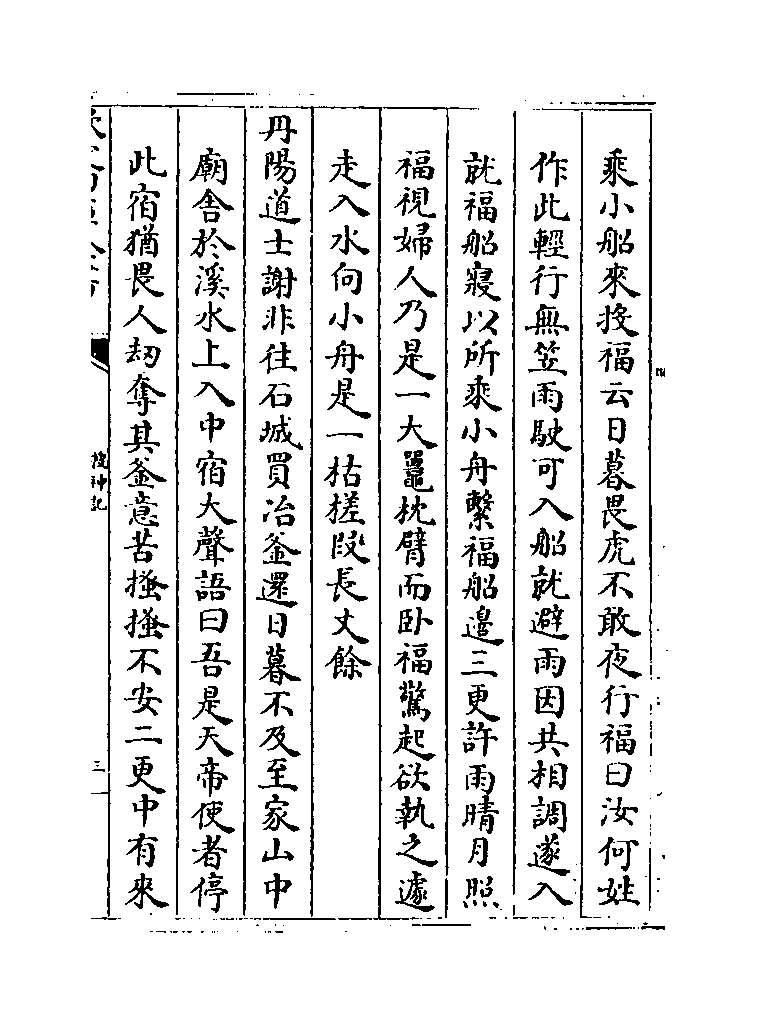 乘小船來投福云日暮畏虎不敢夜行福曰汝何姓
作此輕行無笠雨駛可入船就避雨因共相調遂入
就福船寢以所乘小舟繫福船邊三更許雨晴月照
福視婦人乃是一大鼉枕臂而卧福驚起欲執之遽
走入水向小舟是一枯槎段長丈餘
丹陽道士謝非往石城買冶釜還日暮不及至家山中
廟舍於溪水上入中宿大聲語曰吾是天帝使者停
此宿猶畏人劫奪其釜意苦搔搔不安二更中有來
搜神記